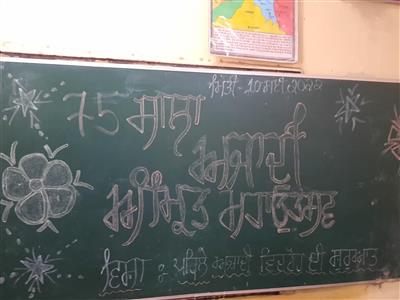 ਮਿਤੀ - 10 ਮਈ 2022
75 ਸਾਲਾ
ਅਜ਼ਾਦੀ
ਅੰਮ੍ਰਿਤ ਮਹਾਂਉਤਸਵ
ਵਿਸ਼ਾ :- ਪਹਿਲੇ ਅਜ਼ਾਦੀ ਵਿਦਰੋਹ ਦੀ ਸ਼ੁਰੂਆਤ